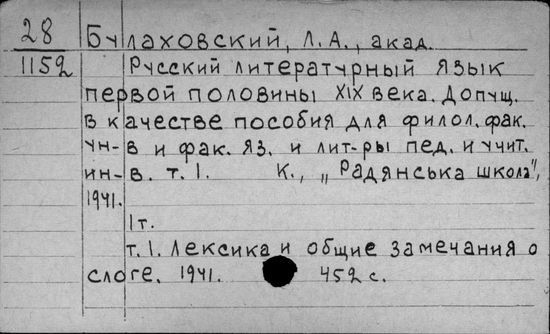 28 Булаховский, Л.А., акад.
1152 Русский литературный язык
первой половины XIX века. Допущ.
в качестве пособия для филол. фак.
ун-в и фак. яз. и лит-ры пед. и учит.
ин-в. т. 1. К., „Радянська школа",
1941.
1т.
т. 1. Лексика и общие замечания о
слоге. 1941. 452 с.